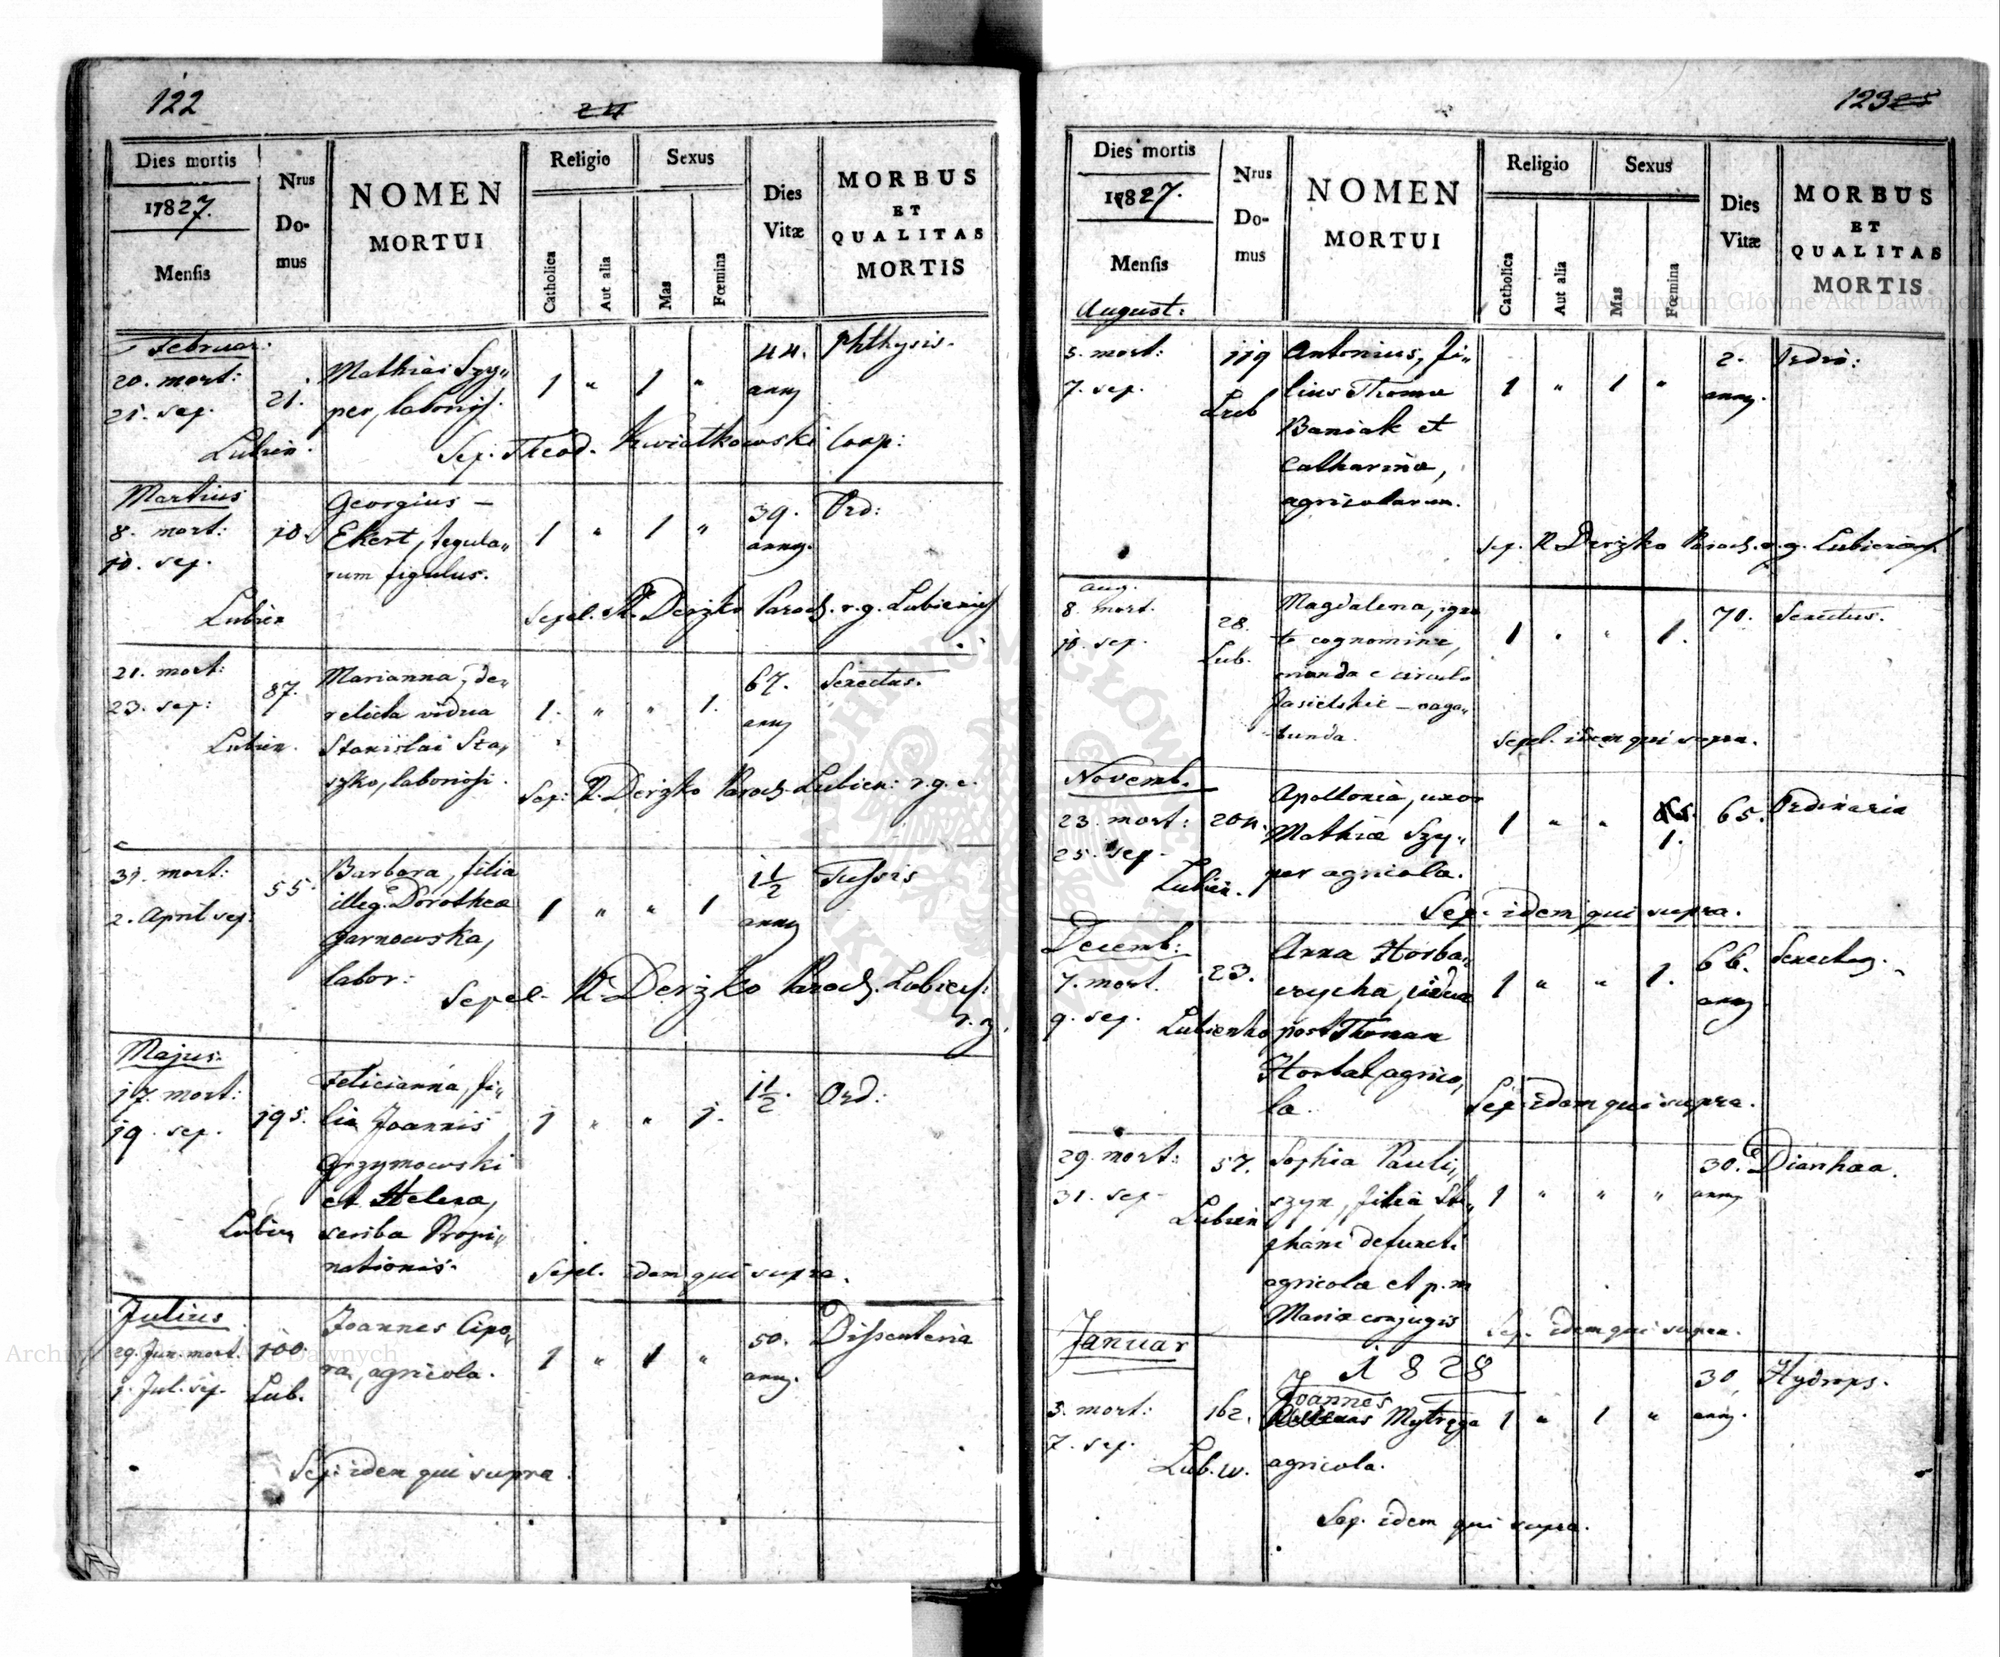 122
24
Dies mortis
1827.
Mensis
Nrus
Do-
mus
NOMEN
MORTUI
Religio
Catholica
Aut alia
Sexus
Mas
Fœmina
Dies
Vitæ
MORBUS
ET
QUALITAS
MORTIS
Februar:
20. mort:
21. sep.
21.
Lubien.
Mathias Szy„
per, laborios.
1 „ 1 „
44.
anny
Phthysis.
Sep. Theod. Kwiatkowski Coop:
Martius
8. mort:
10. sep.
10.
Lubien
Georgius –
Ekert, tegula„
rum figulus.
1 „ 1 „
39.
anny.
Ord:
Sepel. R. Derzko Paroch. r. g. Lubienis
21. mort:
23. sep:
87.
Lubien.
Marianna, de„
relicta vidua
Stanislai Sta„
szko, laboriosi.
1. „ „ 1.
67.
anny
Senectus.
Sep: R. Derzko Paroch. Lubien: r. g. c.
31. mort:
2. April sep.
55.
Barbara, filia
illeg. Dorothea
Jarnowska,
labor:
1 „ „ 1
1½
anny
Tussis
Sepel. R. Derzko Paroch. Lubien:
r. g.
Majus.
17. mort:
19. sep.
195.
Lubien
Felicianna, fi„
lia Joannis
Grzymowski
et Helena,
scriba Propi„
nationis.
1 „ „ 1.
1½.
Ord:
Sepel. idem qui supra.
Julius
29. Jun. mort.
1. Jul. sep.
100.
Lub.
Joannes Cipo„
ra, agricola.
1 „ 1 „
50.
anny.
Dissenteria
Sep. idem qui supra.
123 25
Dies mortis
1827.
Mensis
Nrus
Do-
mus
NOMEN
MORTUI
Religio
Catholica
Aut alia
Sexus
Mas
Fœmina
Dies
Vitæ
MORBUS
ET
QUALITAS
MORTIS.
August:
5. mort:
7. sep.
119
Lub
Antonius, fi„
lius Thoma
Baniak et
Catharina,
agricolarum.
1 „ 1 „
2.
anny.
Ordin:
Sep. R. Derzko Paroch. r. g. Lubienis
Aug.
8. mort.
10. sep.
28.
Lub.
Magdalena, igno
to cognomine,
oriunda e circulo
Jasielskie – vaga„
bunda.
1 „ „ 1.
70.
Senectus.
Sepel. idem qui supra.
Novemb.
23. mort:
25. sep.
204.
Lubien.
Apollonia, uxor
Mathiæ Szy„
per agricola.
1 „ „ 1.
65.
Ordinaria
Sep. idem qui supra.
Decemb:
7. mort.
9. sep.
23.
Lubienko
Anna Horba„
czycha, vidua
post Thoman
Horbal, agrico„
la.
1 „ „ 1.
66.
anny
Senectus.
Sep. idem qui supra.
29. mort:
31. sep.
57.
Lubien
Sophia Pauli„
szyn, filia Ste„
phani defuncti
agricola et p. m
Maria conjugis
1 „ „ „
30.
anny
Diarrhaa.
Sep. idem qui supra.
Januar
1828
3. mort:
7. sep.
162.
Lub. w.
Joannes
Mytręga
agricola.
1 „ 1 „
30
anny.
Hydrops.
Sep. idem qui supra.
Archiwum Główne Akt Dawnych
Archiwum Główne Akt Dawnych
ARCHIWUM GŁÓWNE AKT DAWNYCH